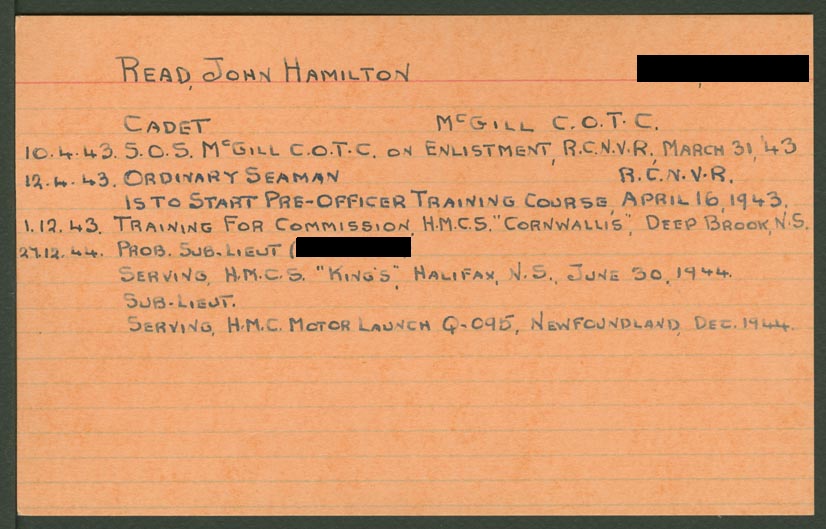 READ, JOHN HAMILTON
CADET McGILL C.O.T.C.
10.4.43. S.O.S. McGILL C.O.T.C. ON ENLISTMENT, R.C.N.V.R., MARCH 31, '43
12.4.43. ORDINARY SEAMAN R.C.N.V.R.
IS TO START PRE-OFFICER TRAINING COURSE, APRIL 16, 1943.
1.12.43. TRAINING FOR COMMISSION, H.M.C.S. "CORNWALLIS", DEEP BROOK, N.S.
27.12.44. PROB. SUB-LIEUT (
SERVING, H.M.C.S. "KING'S", HALIFAX, N.S., JUNE 30, 1944.
SUB-LIEUT.
SERVING, H.M.C. MOTOR LAUNCH Q-095, NEWFOUNDLAND, DEC. 1944.